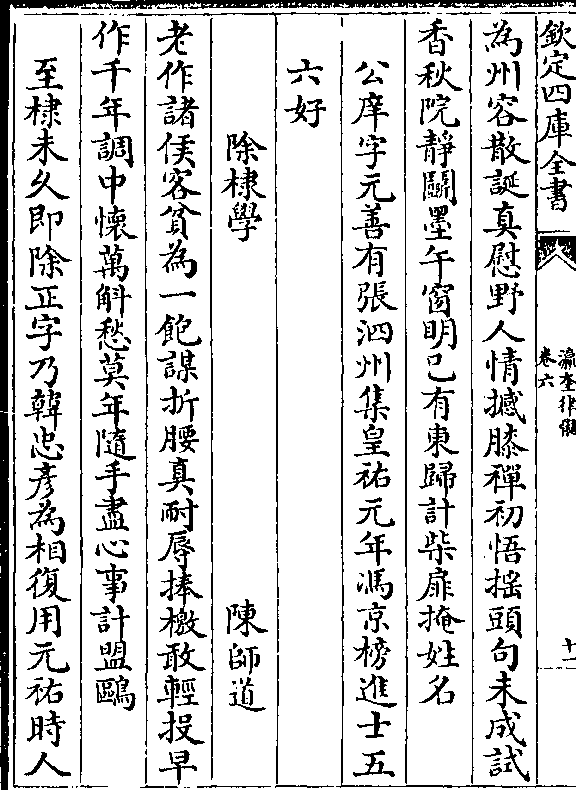 欽定四庫全書
瀛奎律髓
卷六
十一
為州容散誕真慰野人情撼膝禪初悟揺頭句未成試
香秋院静鬭墨午窗明已有東歸計柴扉掩姓名
公庠字元善有張泗州集皇祐元年馮京榜進士五
六好
除棣學　陳師道
老作諸侯客貧為一飽謀折腰真耐辱捧檄敢輕投早
作千年調中懐萬斛愁莫年隨手盡心事計盟鷗
至棣未久即除正字乃韓忠彦為相復用元祐時人